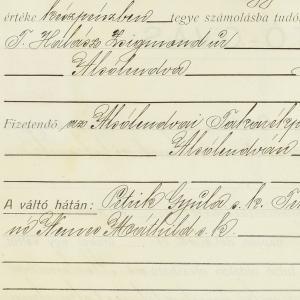 értéke készpénzben tegye számolásba tudó
T. Halász Zsigmond úr
Alsólendva
Fizetendő az Alsólendvai Takarékp
Alsólendván
A váltó hátán: Petrik Gyula s. k. 
né Nemes Mathild s. k.